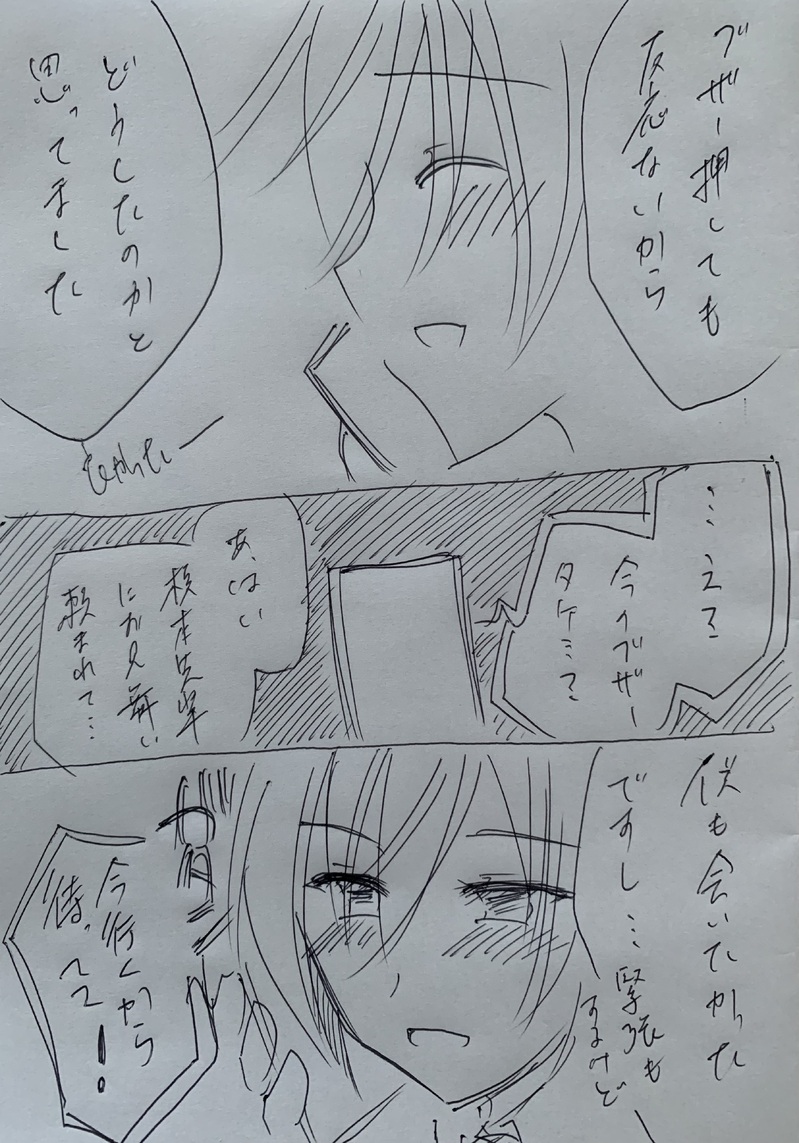 ブザー押しても
反応ないから
どうしたのかと
思ってました
よかった
…え?
今のブザー
タケミ?
あ、はい
にお見舞い
頼まれて…
僕も会いたかった
ですし…緊張も
するけど
今行くから
待ってて!